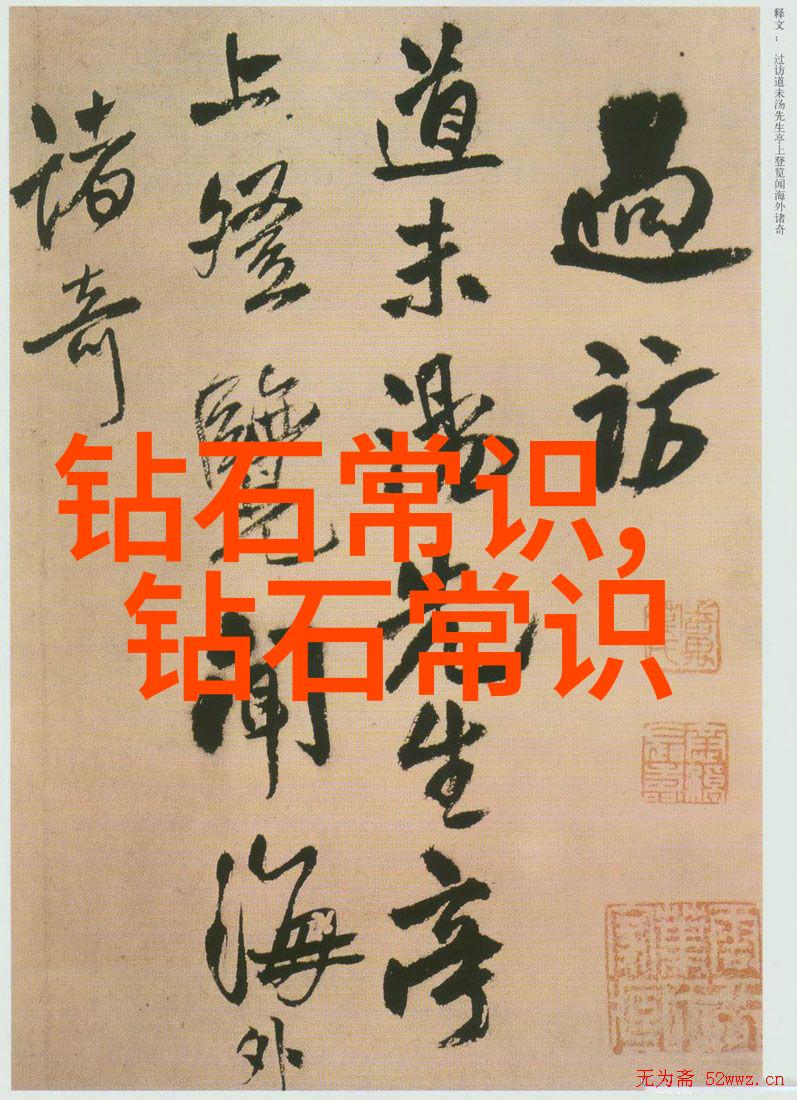 释文： 过访道未汤先生亭上登览闻海外诸奇
過訪
道未湯先生亭
上登覽聞海外
諸奇
钻石常识,
钻石常识
无为斋 52wwz.cn